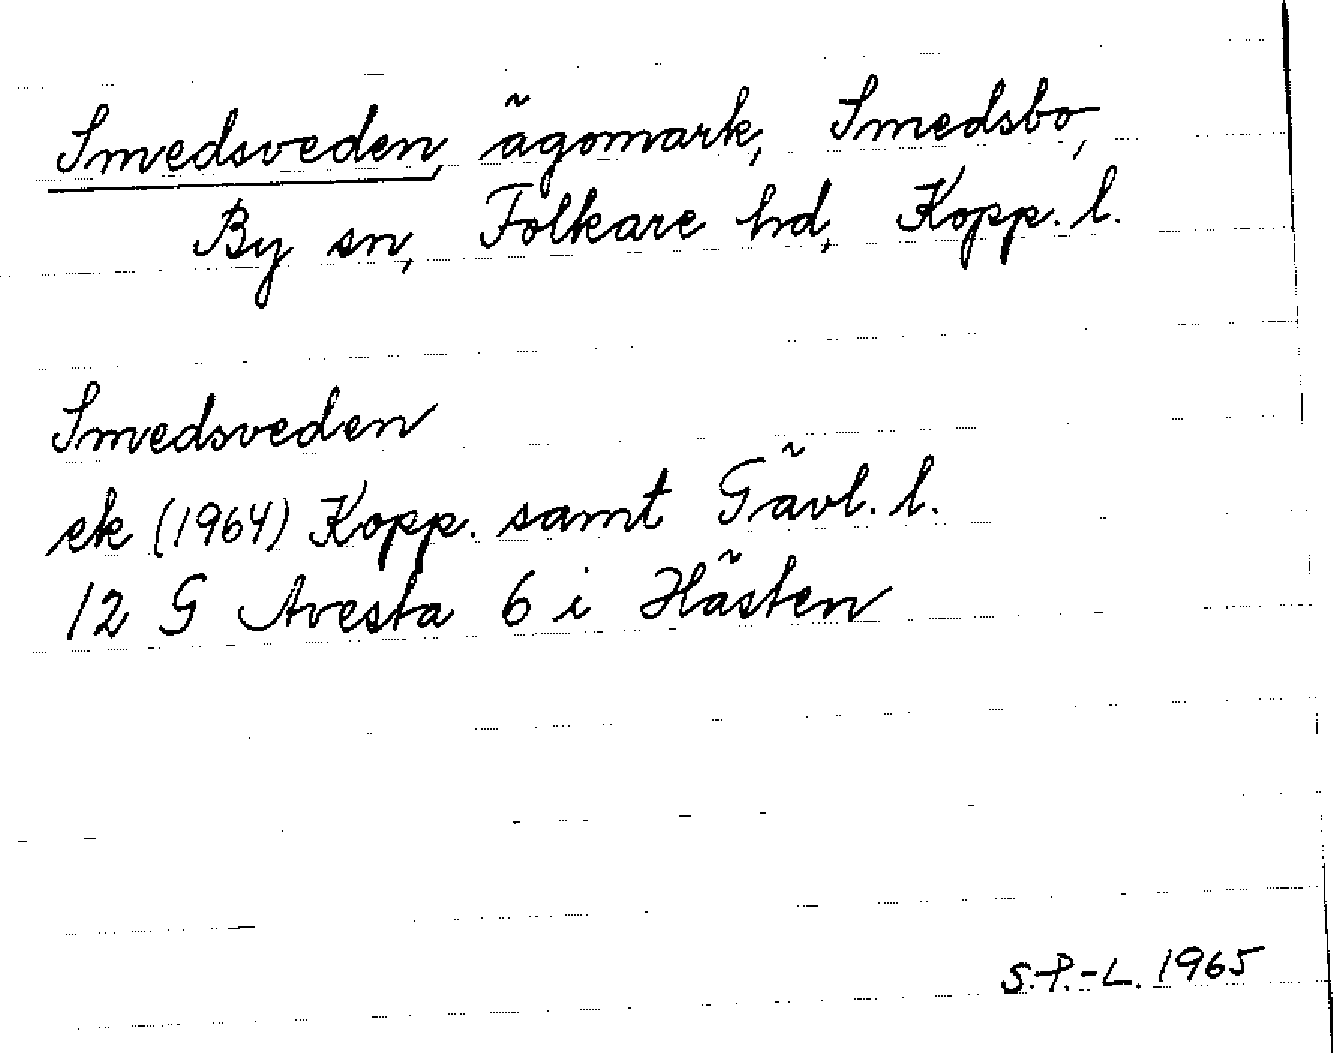 Smedsveden, ägomark, Smedsbo,
By sn, Folkare hd, Kopp. l.
Smedsveden
ek (1964) Kopp. samt Gävl. l.
12 G Avesta 6 i Hästen
S.-P.-L. 1965